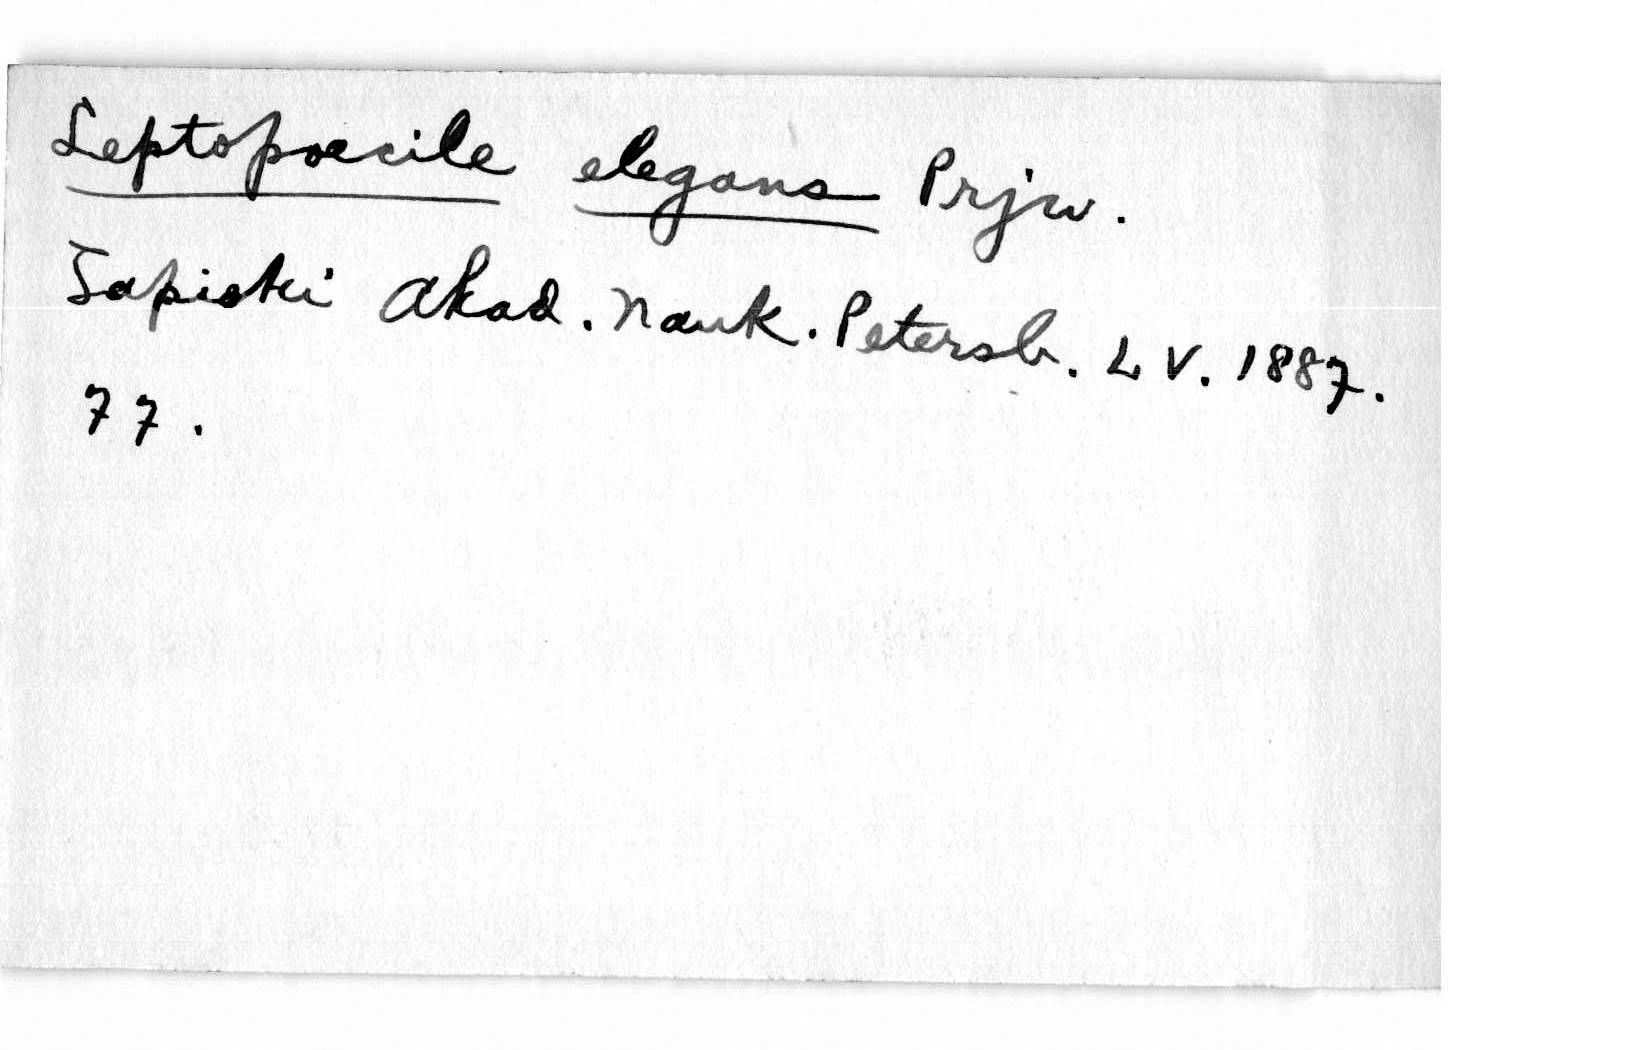 Leptopoecile elegans Prjw.
Sapiski Akad. Nauk. Petersb. LV. 1887.
77.